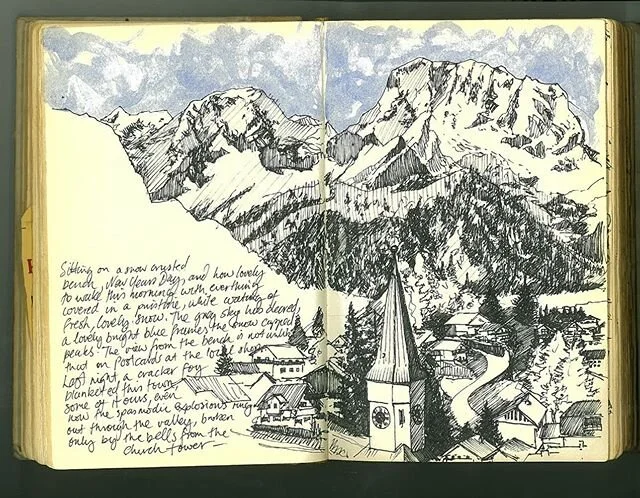 Sitting on a snow crusted
bench, New Years Day, and how lovely
to wake this morning with everything
covered in a pristine, white coating of
fresh, lovely snow. The grey sky has cleared,
a lovely bright blue frames the snow capped
peaks. The view from the bench is not unlike
that on postcards at the local shop.
Last night, a cracker fog
blanketed this town,
some of it ours, even
now the spasmodic explosions ring
out through the valley, broken
only by the bells from the
church tower